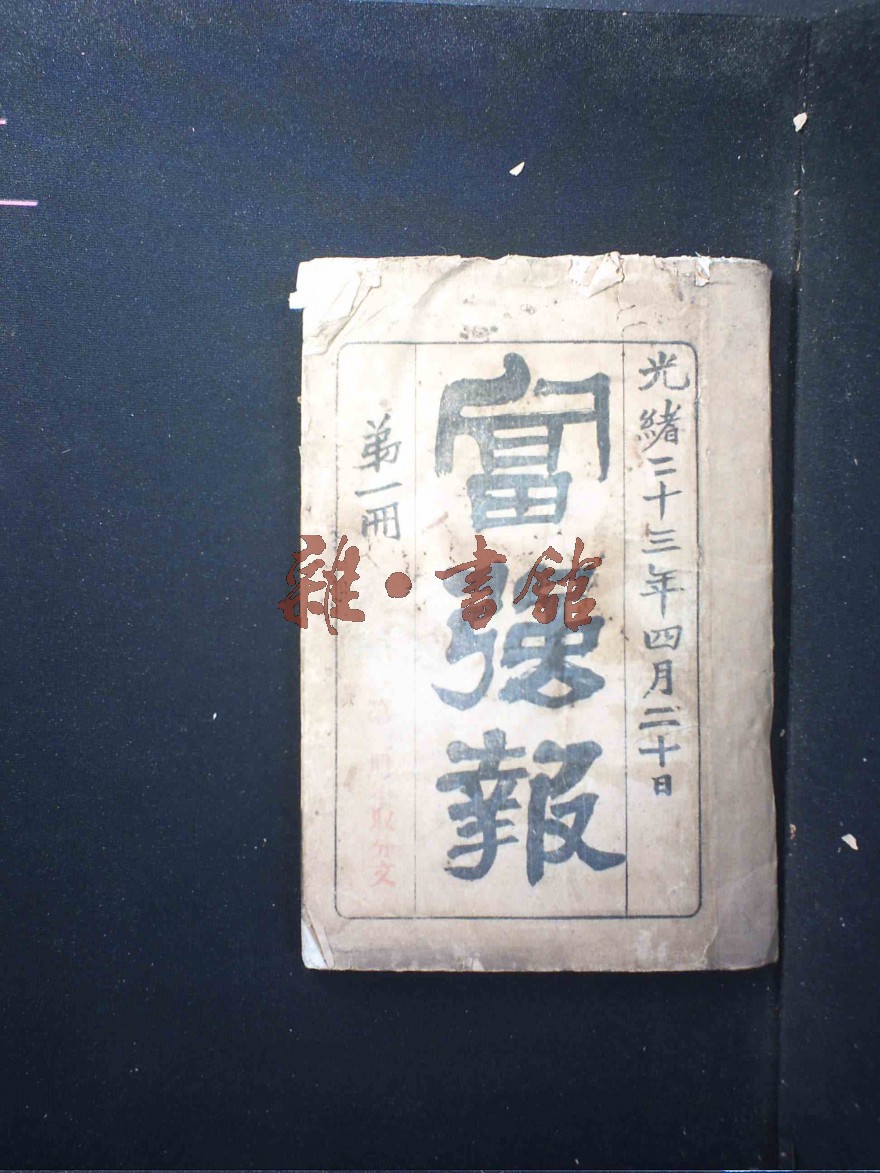 光緒二十三年四月二十日
富強報
弟一冊
取分文
雜·書館